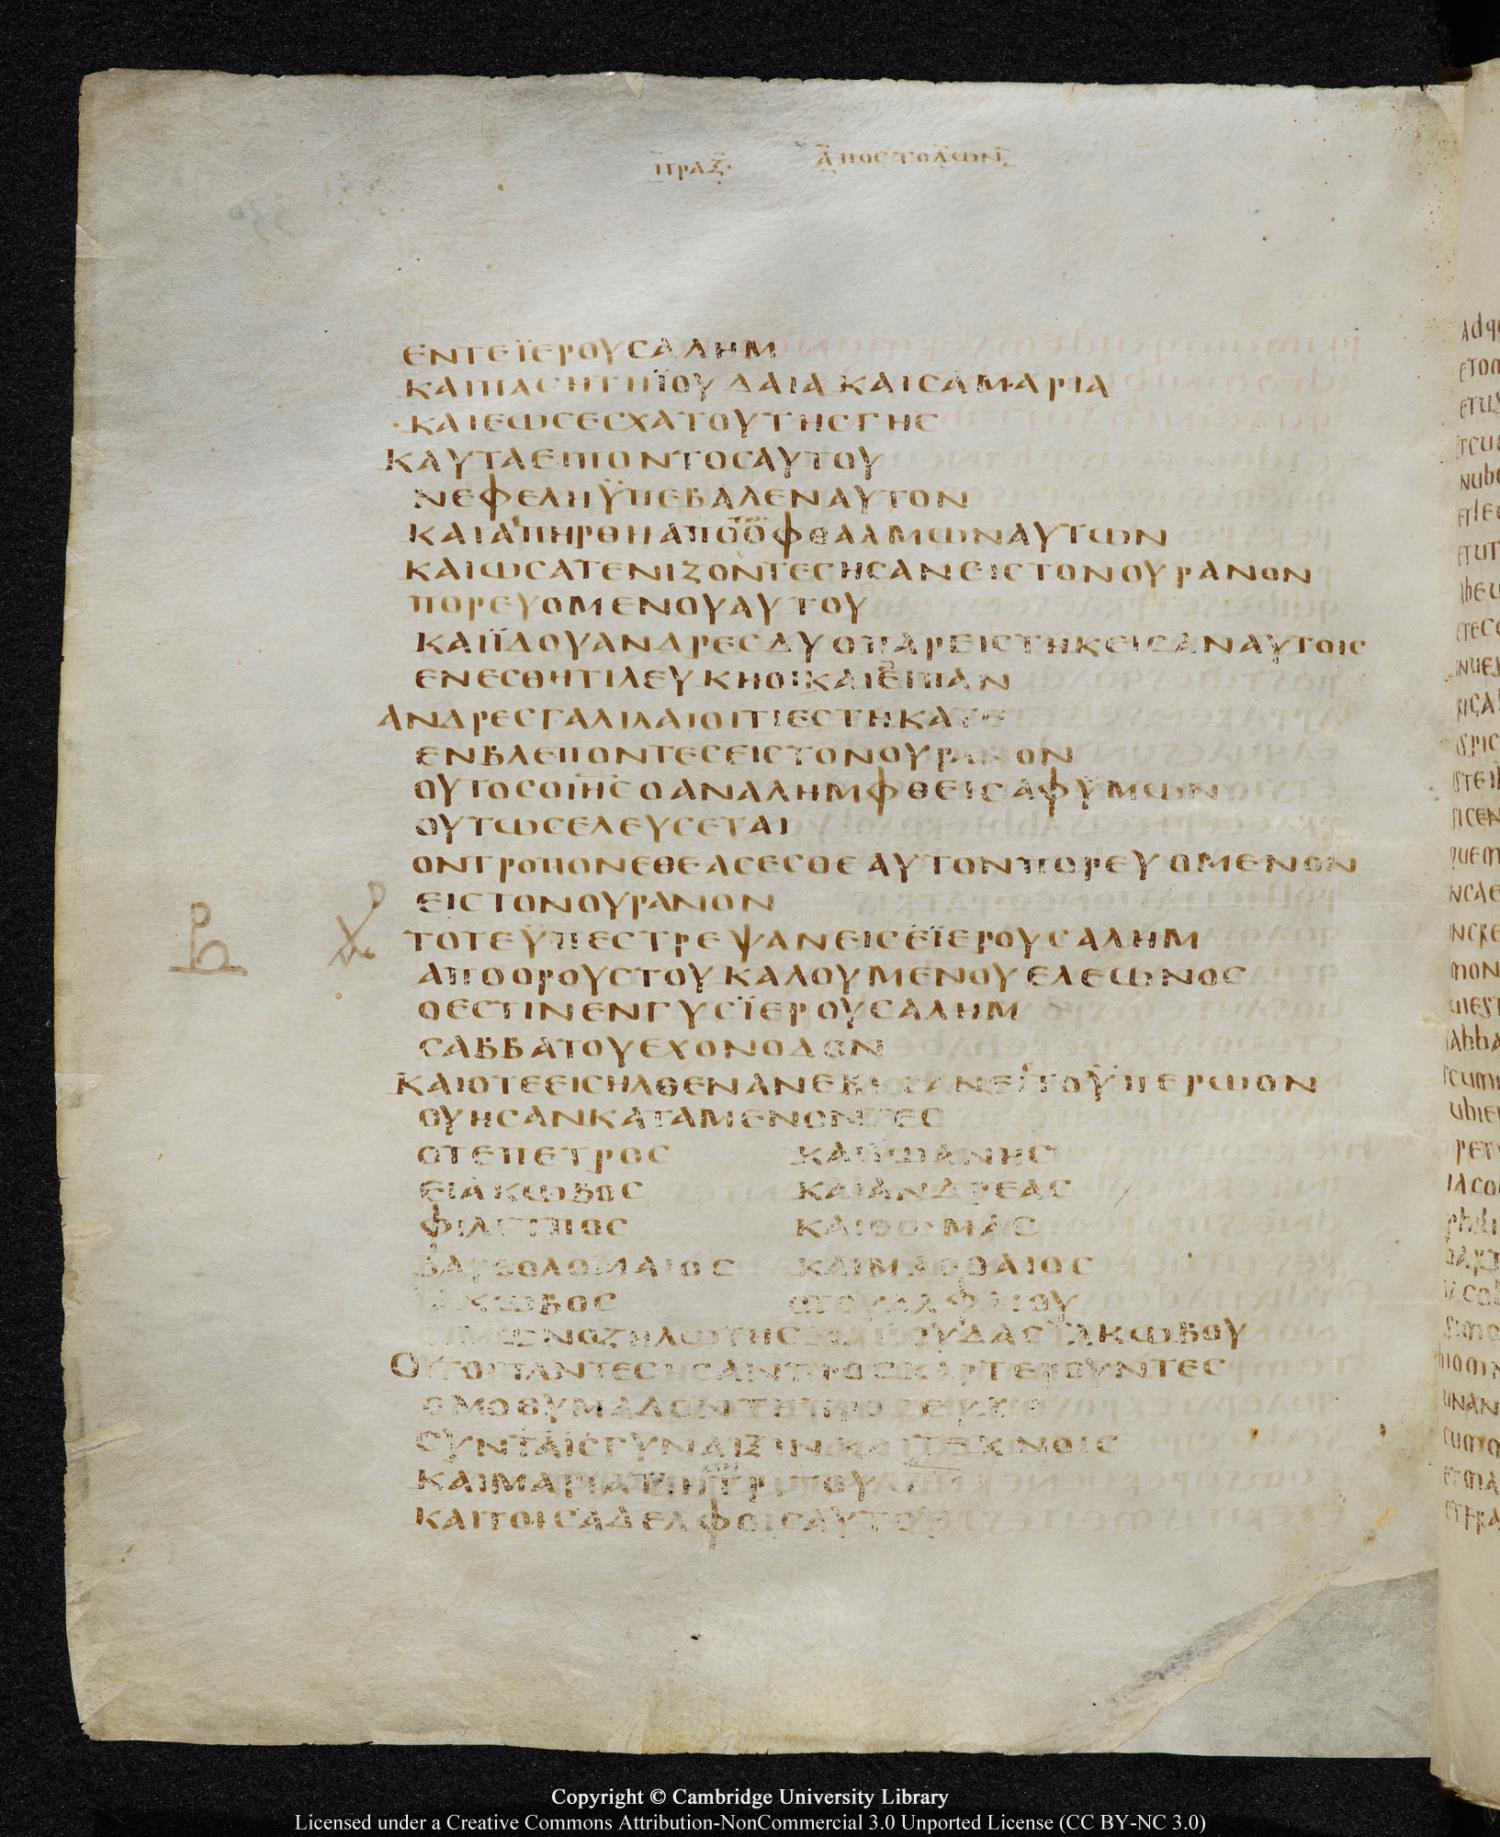 ΠΡΑΞ· ΑΠΟСΤΟΛΩΝ
ΕΝΤΕΪΕΡΟΥСΑΛΗΜ
ΚΑΙΠΑСΗΤΗΪΟΥΔΑΙΑ ΚΑΙСΑΜΑΡΙΑ
·ΚΑΙΕΩСΕСΧΑΤΟΥΤΗСΓΗС
ΚΑΥΤΑΕΙΠΟΝΤΟСΑΥΤΟΥ
ΝΕΦΕΛΗΫΠΕΒΑΛΕΝΑΥΤΟΝ
ΚΑΙΑΠΗΡΘΗΑΠΟΟΦΘΑΛΜΩΝΑΥΤΩΝ
ΚΑΙΩСΑΤΕΝΙΖΟΝΤΕСΗСΑΝΕΙСΤΟΝΟΥΡΑΝΟΝ
ΠΟΡΕΥΟΜΕΝΟΥΑΥΤΟΥ
ΚΑΙΪΔΟΥΑΝΔΡΕСΔΥΟΠΑΡΕΙСΤΗΚΕΙСΑΝΑΥΤΟΙС
ΕΝΕСΘΗΤΙΛΕΥΚΗΟΙΚΑΙΕΙΠΑΝ
ΑΝΔΡΕСΓΑΛΙΛΑΙΟΙΤΙΕСΤΗΚΑΤΕ
ΕΝΒΛΕΠΟΝΤΕСΕΙСΤΟΝΟΥΡΑΝΟΝ
ΟΥΤΟСΟΙΗСΟΑΝΑΛΗΜΦΘΕΙСΑΦΥΜΩΝ
ΟΥΤΩСΕΛΕΥСΕΤΑΙ
ΟΝΤΡΟΠΟΝΕΘΕΑСΕСΘΕΑΥΤΟΝΠΟΡΕΥΟΜΕΝΟΝ
ΕΙСΤΟΝΟΥΡΑΝΟΝ
ΤΟΤΕΫΠΕСΤΡΕΨΑΝΕΙСΕΪΕΡΟΥСΑΛΗΜ
ΑΠΟΟΡΟΥСΤΟΥΚΑΛΟΥΜΕΝΟΥΕΛΕΩΝΟС
ΟΕСΤΙΝΕΝΓΥСΪΕΡΟΥСΑΛΗΜ
СΑΒΒΑΤΟΥΕΧΟΝΟΔΟΝ
ΚΑΙΟΤΕΕΙСΗΛΘΕΝΑΝΕΒΗСΑΝΕΙСΤΟΫΠΕΡΩΟΝ
ΟΥΗСΑΝΚΑΤΑΜΕΝΟΝΤΕС
ΟΤΕΠΕΤΡΟС ΚΑΙΪΩΑΝΗС
ΕΙΑΚΩΒΟС ΚΑΙΑΝΔΡΕΑС
ΦΙΛΙΠΠΟС ΚΑΙΘΩΜΑС
ΒΑΡΘΟΛΟΜΑΙΟС ΚΑΙΜΑΘΘΑΙΟС
ΪΑΚΩΒΟС ΟΤΟΥΑΛΦΑΙΟΥ
СΙΜΩΝΟΖΗΛΩΤΗС ΚΑΙΪΟΥΔΑСΪΑΚΩΒΟΥ
ΟΥΤΟΙΠΑΝΤΕСΗСΑΝΠΡΟСΚΑΡΤΕΡΟΥΝΤΕС
ΟΜΟΘΥΜΑΔΟΝΤΗΠΡΟСΕΥΧΗ
СΥΝΤΑΙСΓΥΝΑΙΞΙΝΚΑΙΤΕΚΝΟΙС
ΚΑΙΤΟΙСΑΔΕΛΦΟΙСΑΥΤΟΥ
Copyright © Cambridge University Library
Licensed under a Creative Commons Attribution-NonCommercial 3.0 Unported License (CC BY-NC 3.0)